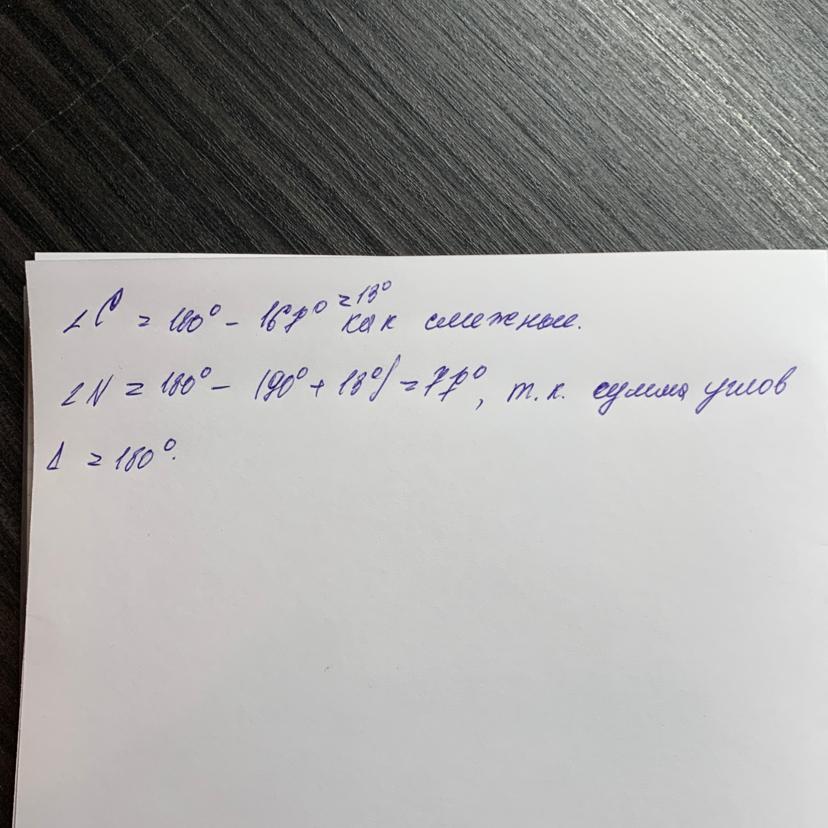 ∠C = 180° - 167° = 13° как смежные.
∠N = 180° - (90° + 13°) = 77°, т.к. сумма углов
Δ = 180°.